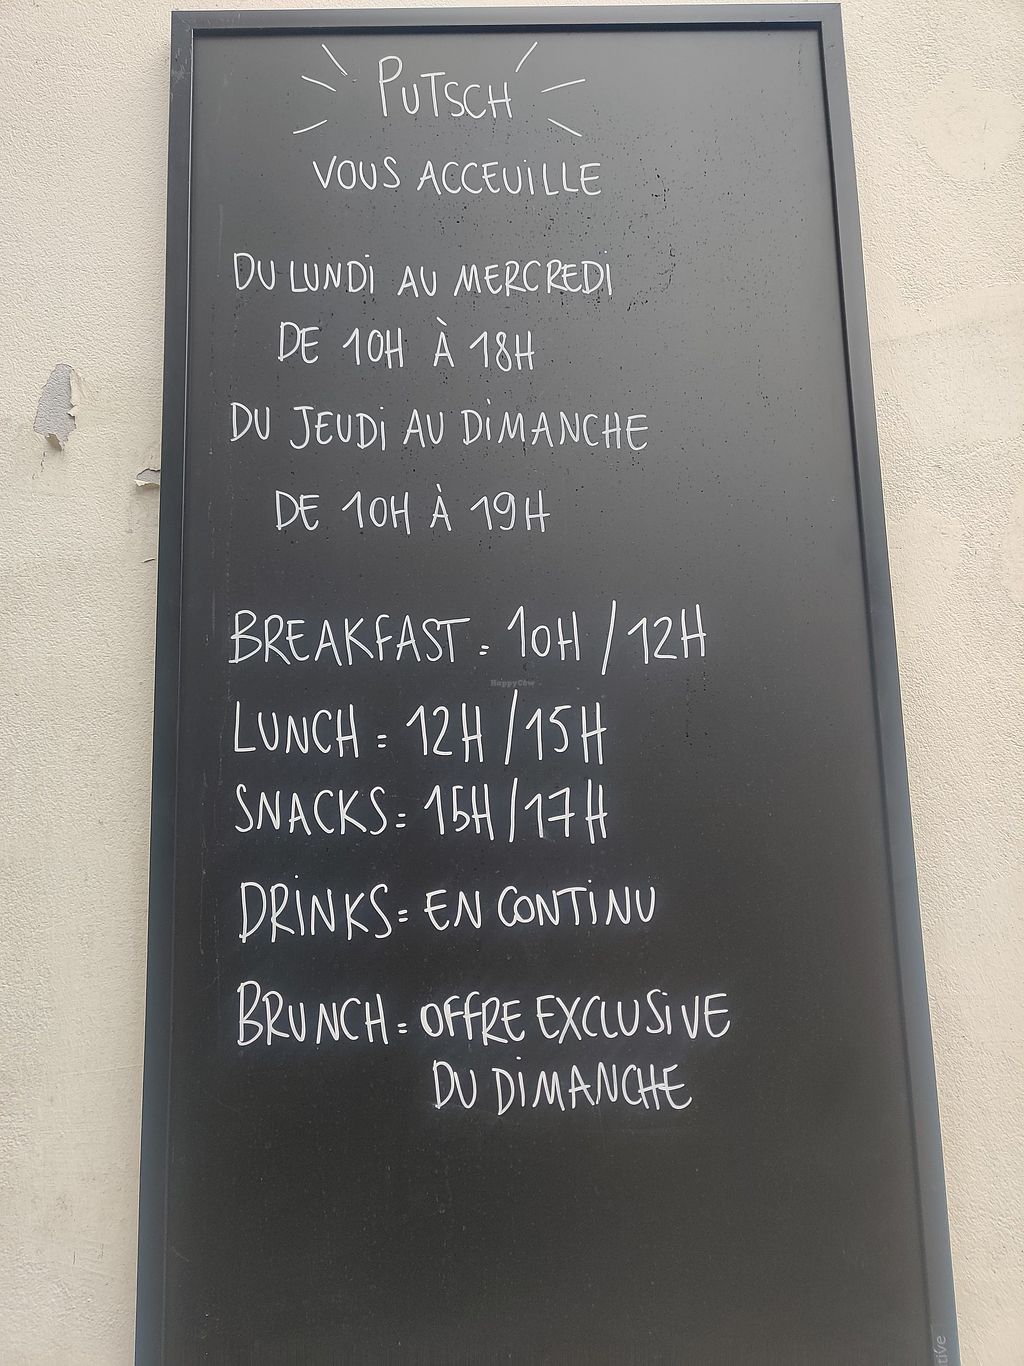 PUTSCH
VOUS ACCEUILLE
DU LUNDI AU MERCREDI
DE 10H À 18H
DU JEUDI AU DIMANCHE
DE 10H À 19H
BREAKFAST = 10H / 12H
HappyCow
LUNCH = 12H / 15H
SNACKS = 15H / 17H
DRINKS = EN CONTINU
BRUNCH = OFFRE EXCLUSIVE
DU DIMANCHE